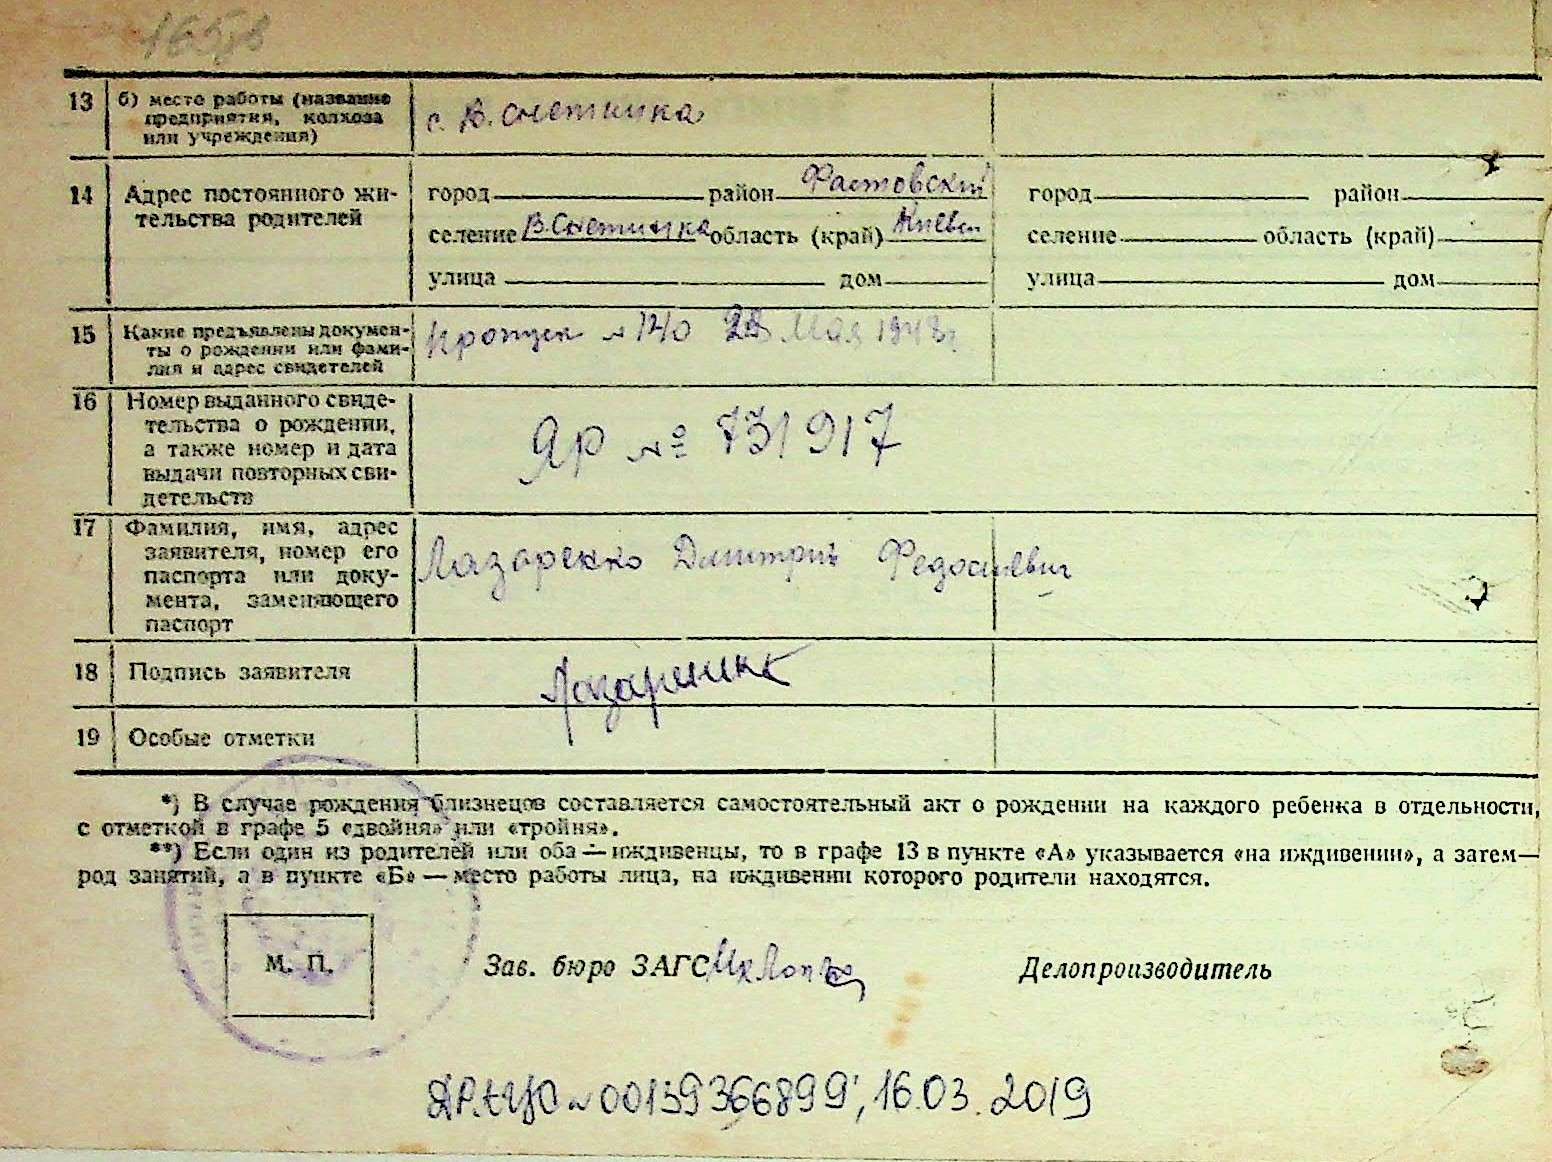 13 б) место работы (название
предприятия, колхоза
или учреждения)
с. В. Снетинка
14 Адрес постоянного жи-
тельства родителей
город район Фастовский
селение В. Снетинка область (край) Киевск
улица дом
город район
селение область (край)
улица дом
15 Какие предъявлены докумен-
ты о рождении или фами-
лия и адрес свидетелей
№ 120 Мая 1948 г.
16 Номер выданного свиде-
тельства о рождении,
а также номер и дата
выдачи повторных сви-
детельств
ЯР № 731917
17 Фамилия, имя, адрес
заявителя, номер его
паспорта или доку-
мента, заменяющего
паспорт
Лазаренко Дмитрий Федосиевич
18 Подпись заявителя
Лазаренко
19 Особые отметки
*) В случае рождения близнецов составляется самостоятельный акт о рождении на каждого ребенка в отдельности,
с отметкой в графе 5 «двойня» или «тройня».
**) Если один из родителей или оба — иждивенцы, то в графе 13 в пункте «А» указывается «на иждивении», а затем—
род занятий, а в пункте «Б» — место работы лица, на иждивении которого родители находятся.
М. П.
Зав. бюро ЗАГС
Делопроизводитель
№ 00139366899, 16.03.2019